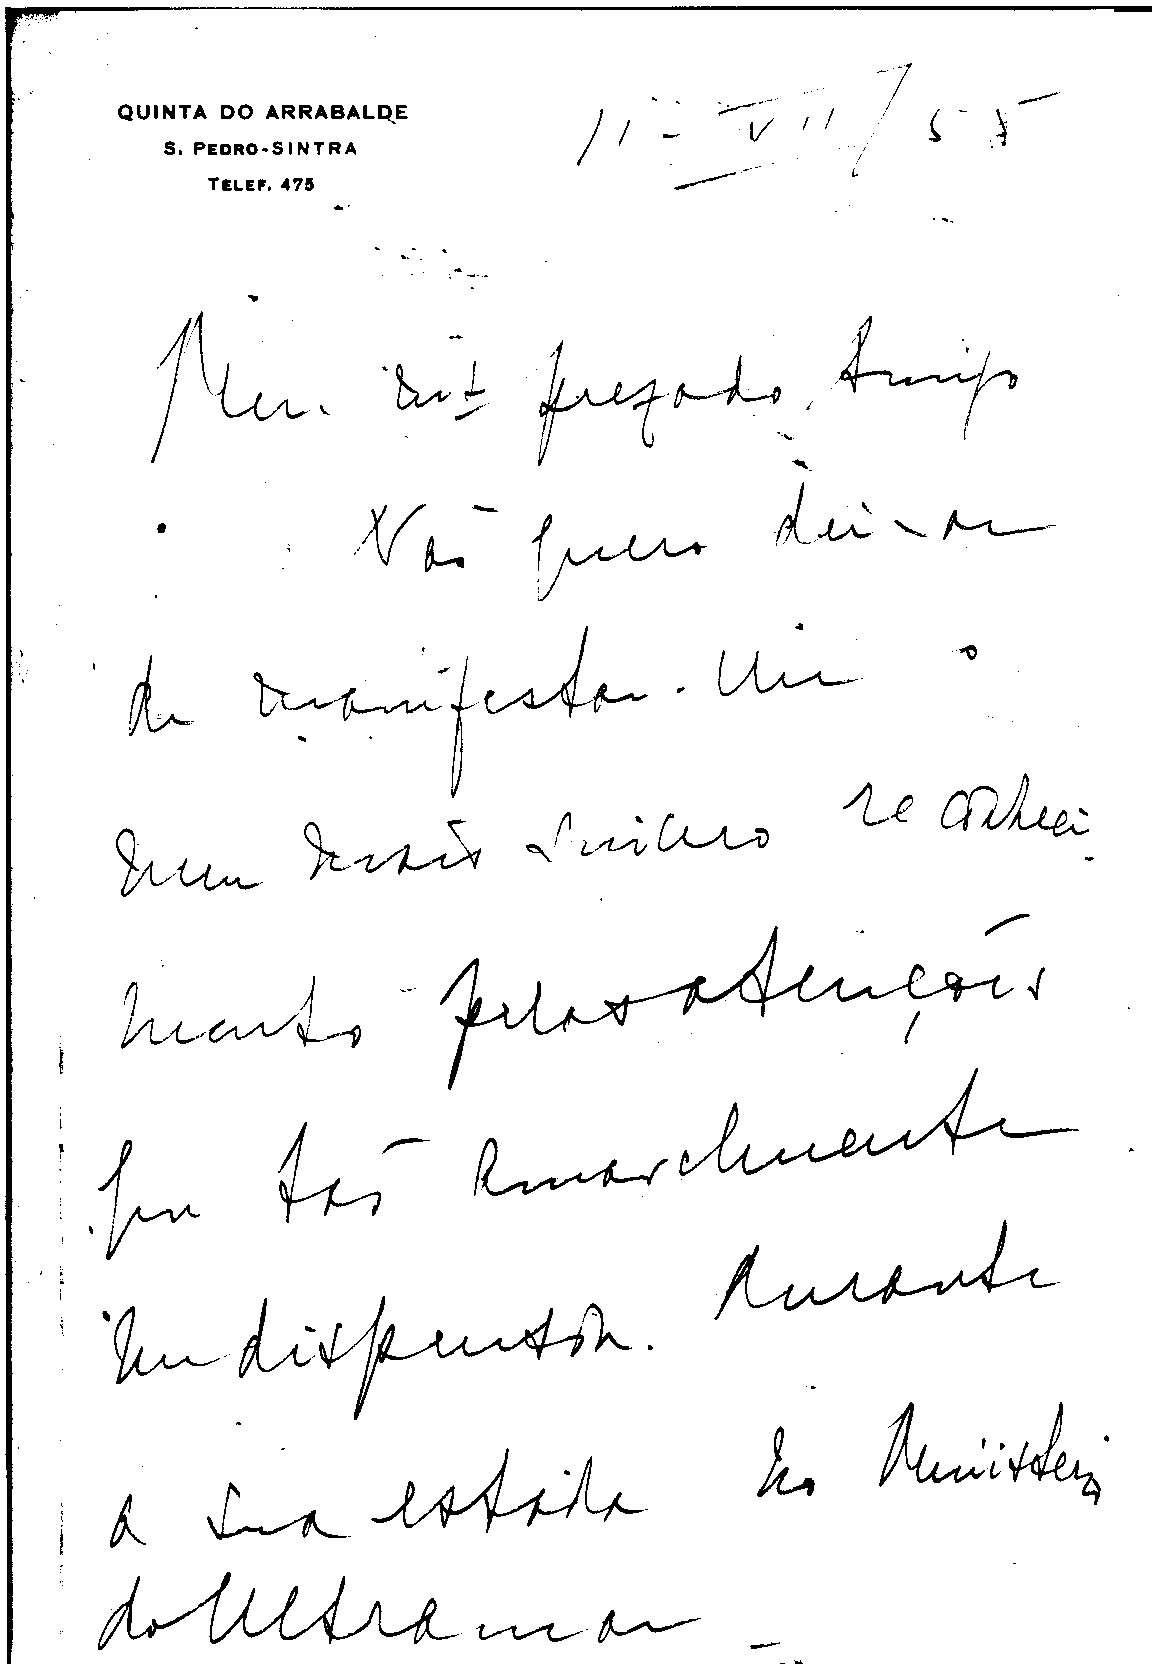 QUINTA DO ARRABALDE
S. PEDRO-SINTRA
TELEF. 475
11-VII/55
Meu mt prezado Amigo
Não quero deixar
de manifestar-lhe o
meu mais sincero reconheci
mento pelas atenções
que tão amavelmente
me dispensou durante
a sua estada no Ministerio
do Ultramar